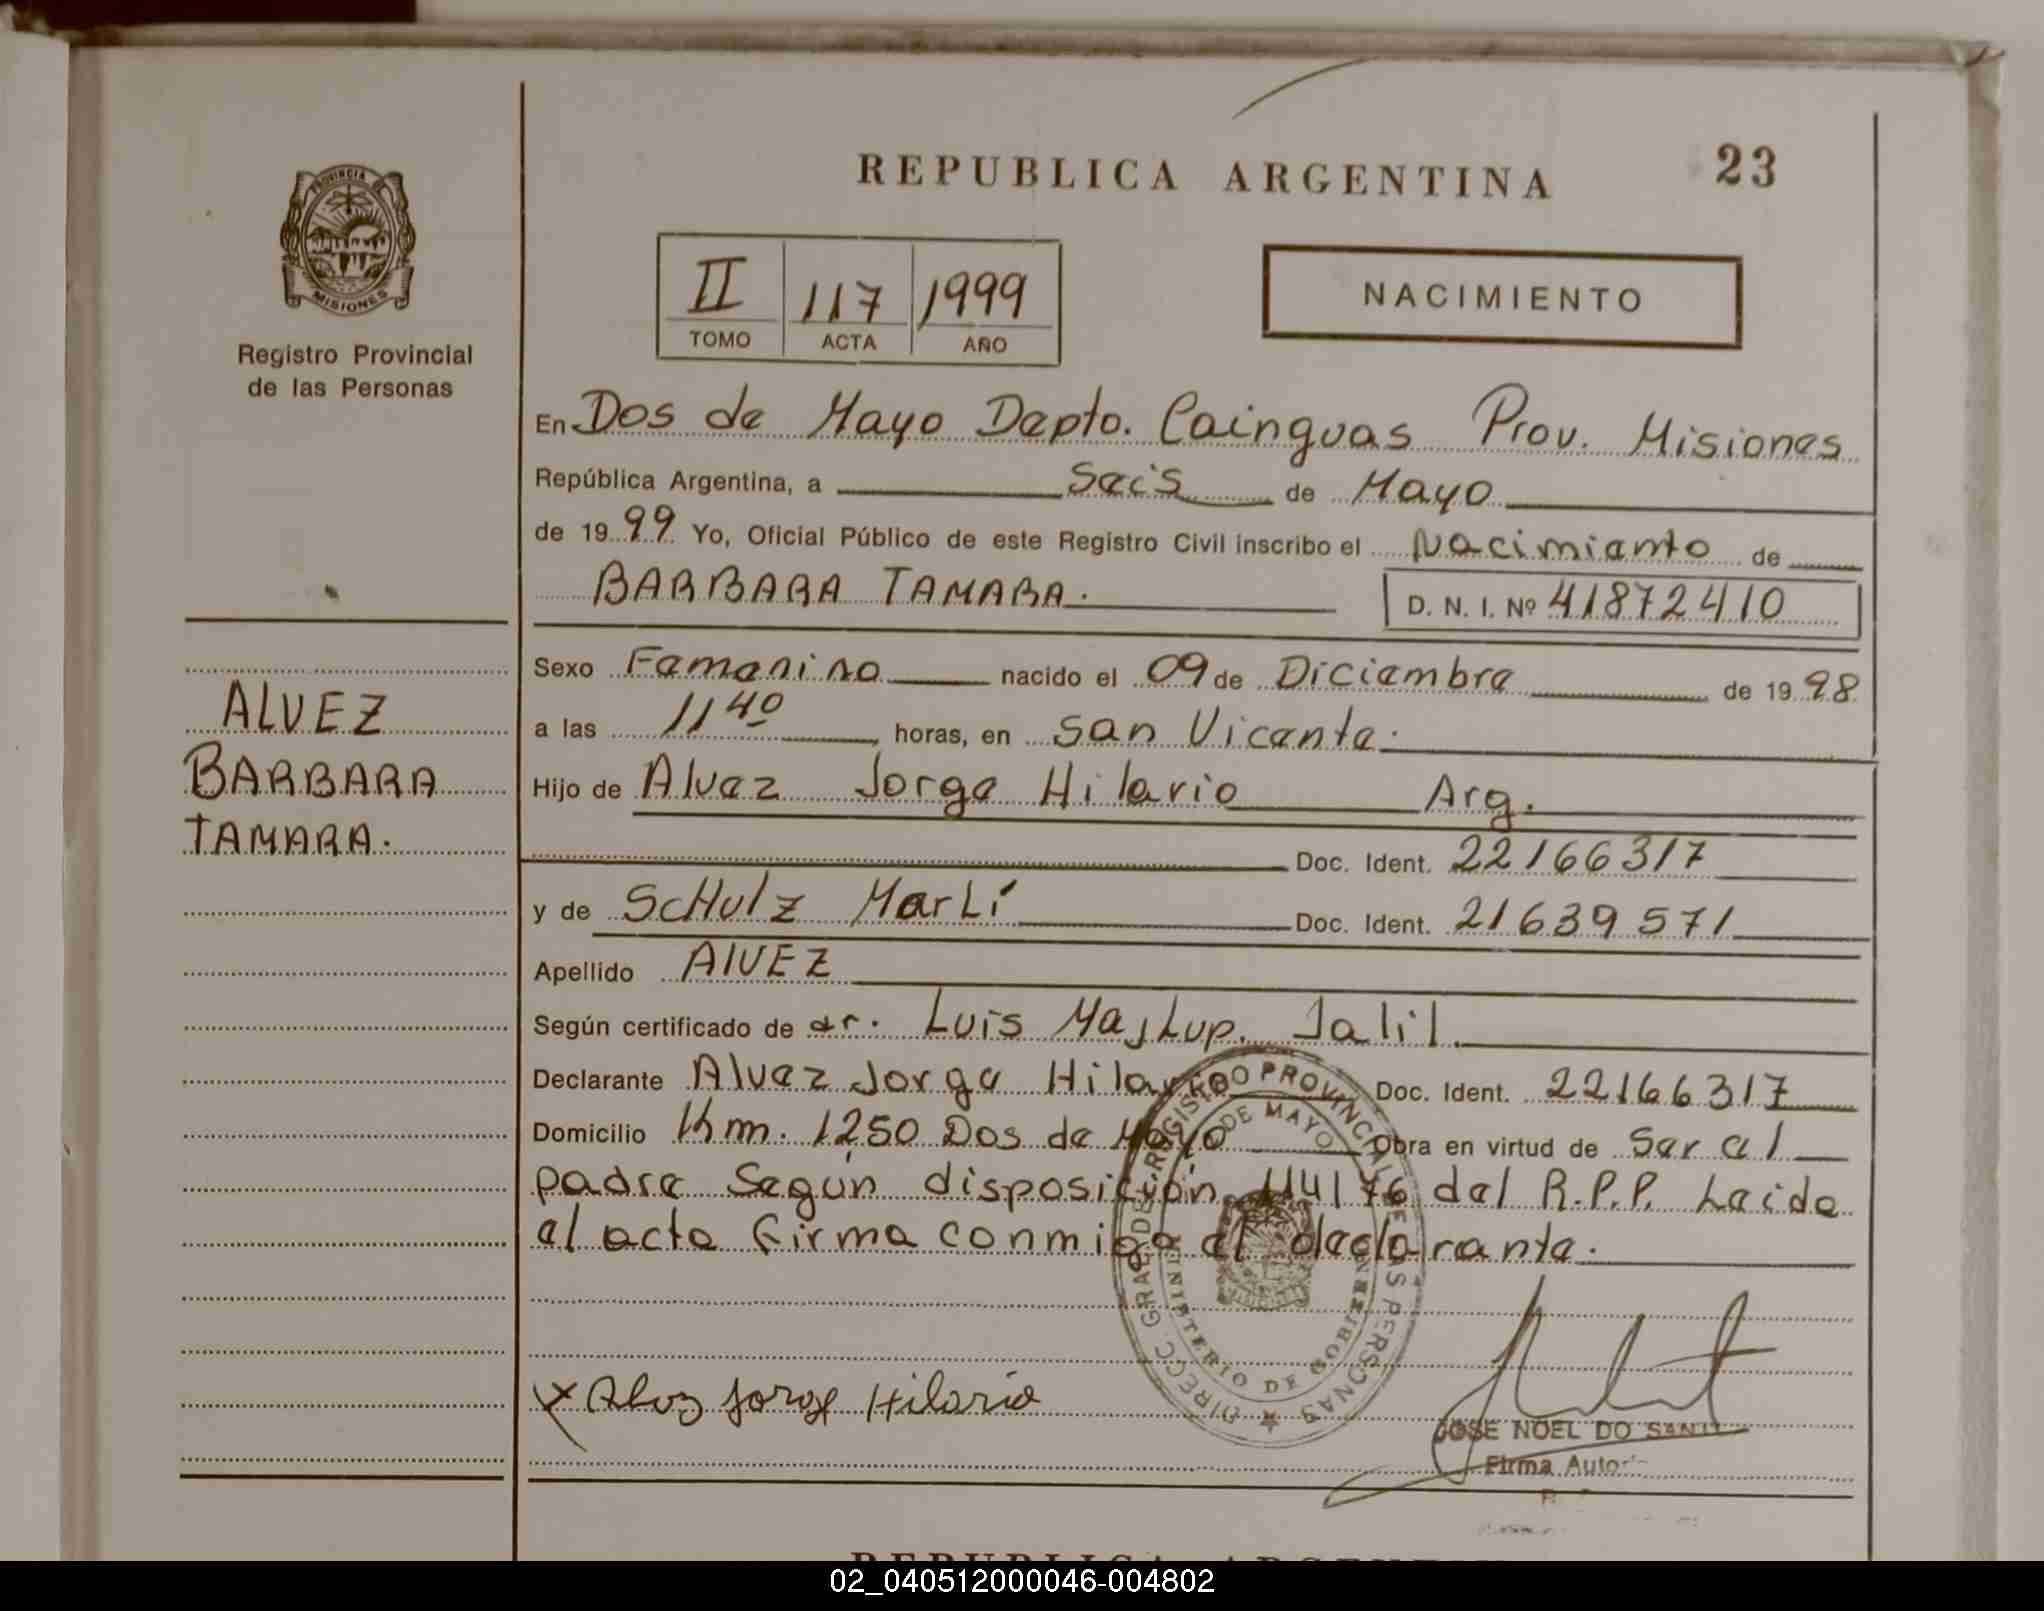 REPUBLICA ARGENTINA
23
PROVINCIA DE
MISIONES
Registro Provincial
de las Personas
II 117 1999
TOMO ACTA AÑO
NACIMIENTO
En Dos de Mayo Depto. Cainguas Prov. Misiones
República Argentina, a Seis de Mayo
de 1999 Yo, Oficial Público de este Registro Civil inscribo el Nacimiento de
BARBARA TAMARA.
D. N. I. Nº 41872410
Sexo Femenino nacido el 09 de Diciembre de 1998
a las 11 40 horas, en San Vicente.
Hijo de Alvez Jorge Hilario Arg.
Doc. Ident. 22166317
y de SCHulz MarLí Doc. Ident. 21639571
Apellido AlVEZ
Según certificado de dr. Luis MajLup. Jalil.
Declarante Alvez Jorge Hilario Doc. Ident. 22166317
Domicilio Km. 1250 Dos de Mayo Obra en virtud de Ser el
padre Según disposición 114/76 del R.P.P. Leida
el acta firma conmigo el declarante.
ALVEZ
BARBARA
TAMARA.
DIRECC. GRAL. DE REGISTRO PROVINCIAL DE LAS PERSONAS
DE MAYO
MINISTERIO DE GOBIERNO
x Alvez Jorge Hilario
JOSE NOEL DO SANT
Firma Autor
REPUBLICA ARGENTINA
02_040512000046-004802